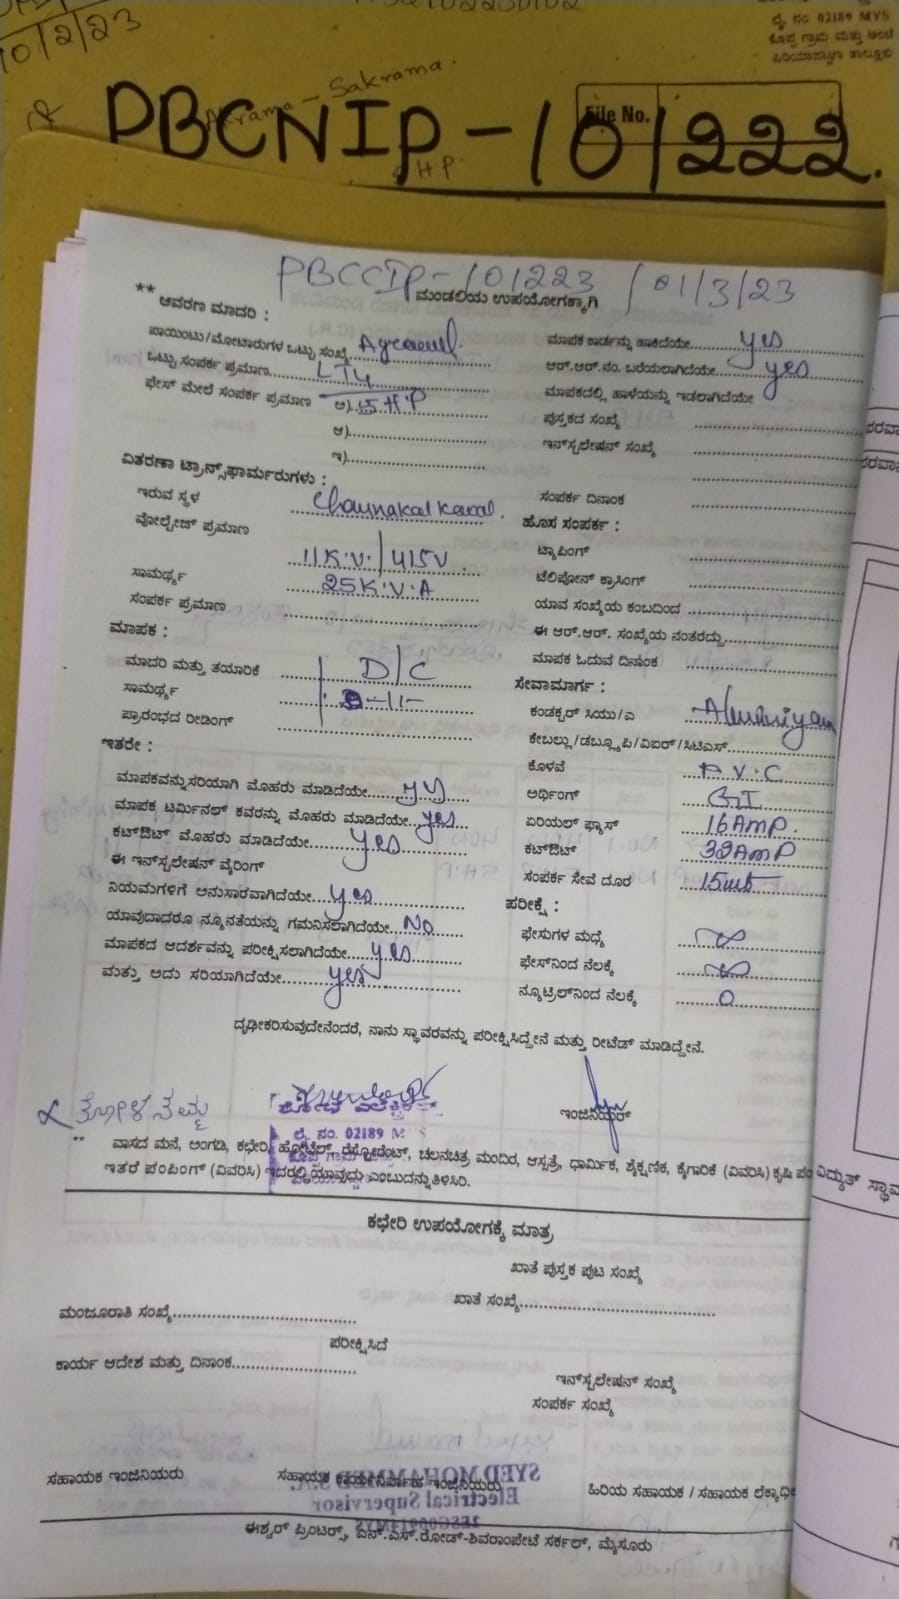 10/2/23
ಲೈ. ನಂ. 02189 MYS
Akrama - Sakrama.
File No.
PBCNIP-101222.
H.P.
PBCCIP-101223 / 01/3/23
** ಆವರಣ ಮಾದರಿ :
ಮಂಡಲಿಯ ಉಪಯೋಗಕ್ಕಾಗಿ
ಪಾಯಿಂಟು/ಮೋಟಾರುಗಳ ಒಟ್ಟು ಸಂಖ್ಯೆ
ಮಾಪಕ ಕಾರ್ಡನ್ನು ಹಾಕಿದೆಯೇ yes
ಒಟ್ಟು ಸಂಪರ್ಕ ಪ್ರಮಾಣ LT4
ಆರ್.ಆರ್.ನಂ. ಬರೆಯಲಾಗಿದೆಯೇ yes
ಫೇಸ್ ಮೇಲೆ ಸಂಪರ್ಕ ಪ್ರಮಾಣ ಅ) 5HP
ಮಾಪಕದಲ್ಲಿ ಹಾಳೆಯನ್ನು ಇಡಲಾಗಿದೆಯೇ
ಆ)
ಪುಸ್ತಕದ ಸಂಖ್ಯೆ
ಇ)
ಇನ್‌ಸ್ಟಲೇಷನ್ ಸಂಖ್ಯೆ
ವಿತರಣಾ ಟ್ರಾನ್ಸ್‌ಫಾರ್ಮರುಗಳು :
ಇರುವ ಸ್ಥಳ Chaunakal Kaval.
ಸಂಪರ್ಕ ದಿನಾಂಕ
ವೋಲ್ಟೇಜ್ ಪ್ರಮಾಣ 11K.V./415V
ಹೊಸ ಸಂಪರ್ಕ :
ಟ್ಯಾಪಿಂಗ್
ಸಾಮರ್ಥ್ಯ 25K.V.A
ಟೆಲಿಫೋನ್ ಕ್ರಾಸಿಂಗ್
ಸಂಪರ್ಕ ಪ್ರಮಾಣ
ಯಾವ ಸಂಖ್ಯೆಯ ಕಂಬದಿಂದ
ಮಾಪಕ :
ಈ ಆರ್.ಆರ್. ಸಂಖ್ಯೆಯ ನಂತರದ್ದು
ಮಾದರಿ ಮತ್ತು ತಯಾರಿಕೆ D/C
ಮಾಪಕ ಓದುವ ದಿನಾಂಕ
ಸಾಮರ್ಥ್ಯ
ಸೇವಾಮಾರ್ಗ :
ಪ್ರಾರಂಭದ ರೀಡಿಂಗ್
ಕಂಡಕ್ಟರ್ ಸಿಯು/ಎ
ಇತರೇ :
ಕೇಬಲ್ಲು/ಡಬ್ಲ್ಯೂಪಿ/ವಿಐರ್/ಸಿಟಿಎಸ್
ಮಾಪಕವನ್ನು ಸರಿಯಾಗಿ ಮೊಹರು ಮಾಡಿದೆಯೇ
ಕೊಳವೆ P.V.C
ಮಾಪಕ ಟರ್ಮಿನಲ್ ಕವರನ್ನು ಮೊಹರು ಮಾಡಿದೆಯೇ yes
ಅರ್ಥಿಂಗ್ GI
ಕಟ್‌ಔಟ್ ಮೊಹರು ಮಾಡಿದೆಯೇ yes
ಏರಿಯಲ್ ಫ್ಯೂಸ್ 16AMP.
ಈ ಇನ್‌ಸ್ಟಲೇಷನ್ ವೈರಿಂಗ್
ಕಟ್‌ಔಟ್ 32AMP
ನಿಯಮಗಳಿಗೆ ಅನುಸಾರವಾಗಿದೆಯೇ yes
ಸಂಪರ್ಕ ಸೇವೆ ದೂರ 15mt
ಯಾವುದಾದರೂ ನ್ಯೂನತೆಯನ್ನು ಗಮನಿಸಲಾಗಿದೆಯೇ No
ಪರೀಕ್ಷೆ :
ಮಾಪಕದ ಆದರ್ಶವನ್ನು ಪರೀಕ್ಷಿಸಲಾಗಿದೆಯೇ yes
ಫೇಸುಗಳ ಮಧ್ಯೆ ∞
ಮತ್ತು ಅದು ಸರಿಯಾಗಿದೆಯೇ yes
ಫೇಸ್‌ನಿಂದ ನೆಲಕ್ಕೆ ∞
ನ್ಯೂಟ್ರಲ್‌ನಿಂದ ನೆಲಕ್ಕೆ 0
ದೃಢೀಕರಿಸುವುದೇನೆಂದರೆ, ನಾನು ಸ್ಥಾವರವನ್ನು ಪರೀಕ್ಷಿಸಿದ್ದೇನೆ ಮತ್ತು ರೀಟೆಡ್ ಮಾಡಿದ್ದೇನೆ.
ಇಂಜಿನಿಯರ್
ಲೈ. ನಂ. 02189
** ವಾಸದ ಮನೆ, ಅಂಗಡಿ, ಕಛೇರಿ, ಹೋಟೆಲ್, ರೆಸ್ಟೋರೆಂಟ್, ಚಲನಚಿತ್ರ ಮಂದಿರ, ಆಸ್ಪತ್ರೆ, ಧಾರ್ಮಿಕ, ಶೈಕ್ಷಣಿಕ, ಕೈಗಾರಿಕೆ (ವಿವರಿಸಿ) ಕೃಷಿ
ಇತರೆ ಪಂಪಿಂಗ್ (ವಿವರಿಸಿ) ಇದರಲ್ಲಿ ಯಾವುದು ಎಂಬುದನ್ನು ತಿಳಿಸಿರಿ.
ಕಛೇರಿ ಉಪಯೋಗಕ್ಕೆ ಮಾತ್ರ
ಖಾತೆ ಪುಸ್ತಕ ಪುಟ ಸಂಖ್ಯೆ
ಖಾತೆ ಸಂಖ್ಯೆ
ಮಂಜೂರಾತಿ ಸಂಖ್ಯೆ
ಪರೀಕ್ಷಿಸಿದೆ
ಕಾರ್ಯ ಆದೇಶ ಮತ್ತು ದಿನಾಂಕ
ಇನ್‌ಸ್ಟಲೇಷನ್ ಸಂಖ್ಯೆ
ಸಂಪರ್ಕ ಸಂಖ್ಯೆ
ಸಹಾಯಕ ಇಂಜಿನಿಯರು
ಸಹಾಯಕ ಕಾರ್ಯನಿರ್ವಾಹ ಇಂಜಿನಿಯರು
ಹಿರಿಯ ಸಹಾಯಕ / ಸಹಾಯಕ
SYED MOHAMMED
Electrical Supervisor
ಈಶ್ವರ್ ಪ್ರಿಂಟರ್ಸ್, ಎನ್.ಎಸ್.ರೋಡ್-ಶಿವರಾಂಪೇಟೆ ಸರ್ಕಲ್, ಮೈಸೂರು